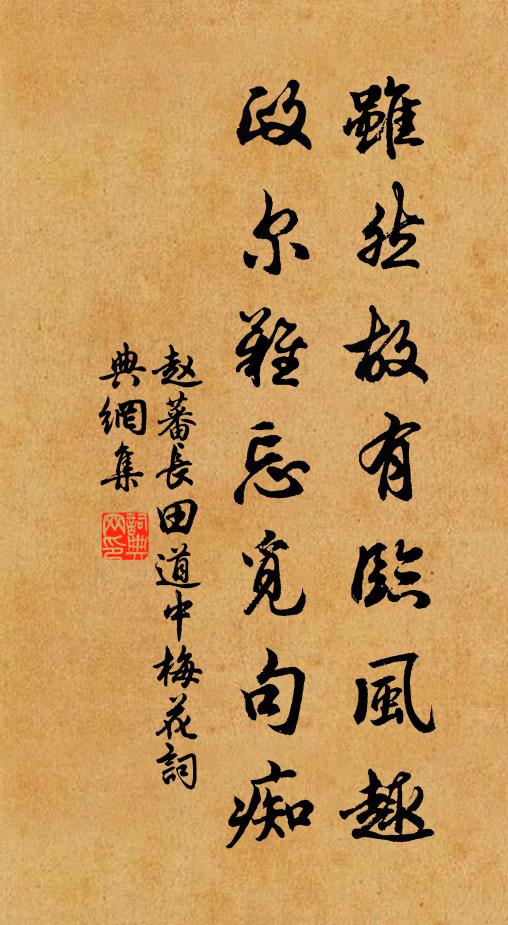 雖然故有臨風趣
政尔難忘覓句痴
赵蕃長田道中梅花詞
典網集
詞典
网印